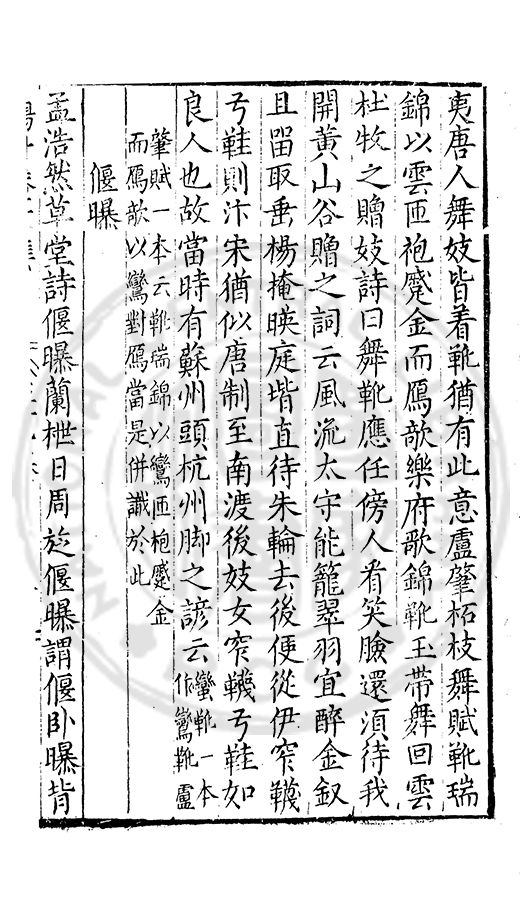 夷唐人舞妓皆着靴猶有此意盧肇柘枝舞賦靴瑞
錦以雲匝袍蹙金而鴈欹樂府歌錦靴玉帶舞回雲
杜牧之贈妓詩曰舞靴應任傍人看笑臉還須待我
開黃山谷贈之詞云風流太守能籠翠羽宜醉金釵
且留取垂楊掩暎庭堦直待朱輪去後便從伊窄韈
弓鞋則汴宋猶似唐制至南渡後妓女窄韈弓鞋如
良人也故當時有蘇州頭杭州脚之諺云蠻靴一本作鸞靴盧
肇賦一本云靴瑞錦以鸞匝袍蹙金
而鴈欹以鸞對鴈當是併識於此
偃曝
孟浩然草堂詩偃曝蘭檐日周㫌偃曝謂偃卧曝背